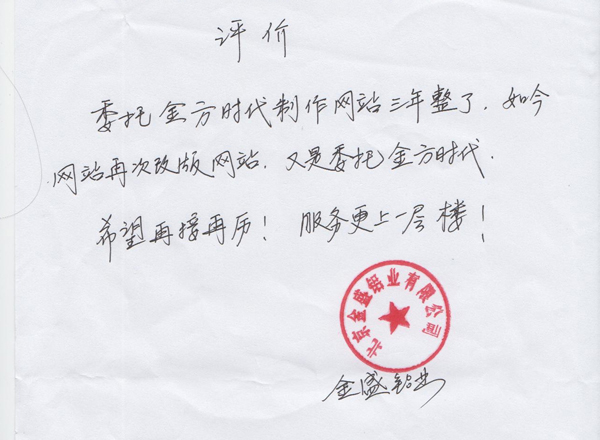 评价
委托金方时代制作网站三年整了.如今
网站再次改版网站.又是委托金方时代.
希望再接再厉！服务更上一层楼！
北京金盛铝业有限公司
金盛铝业